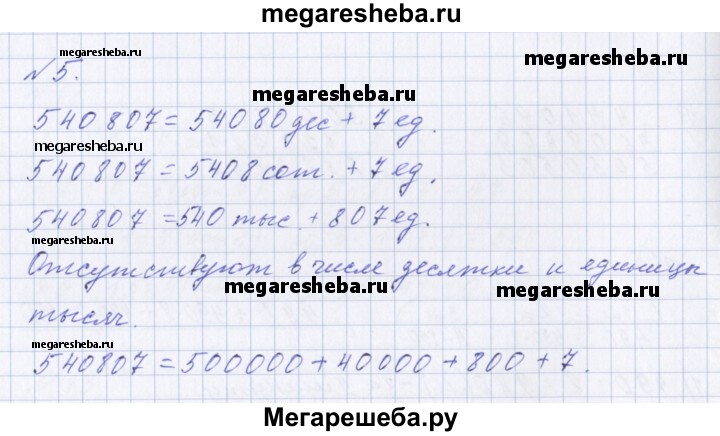 megaresheba.ru
megaresheba.ru
№5.
megaresheba.ru
540807 = 54080 дес + 7 ед.
megaresheba.ru
540807 = 5408 сот. + 7 ед.
megaresheba.ru
540807 = 540 тыс. + 807 ед.
Отсутствуют в числе десятки и единицы
megaresheba.ru
megaresheba.ru
тысяч.
megaresheba.ru
540807 = 500000 + 40000 + 800 + 7.
Мегарешеба.ру